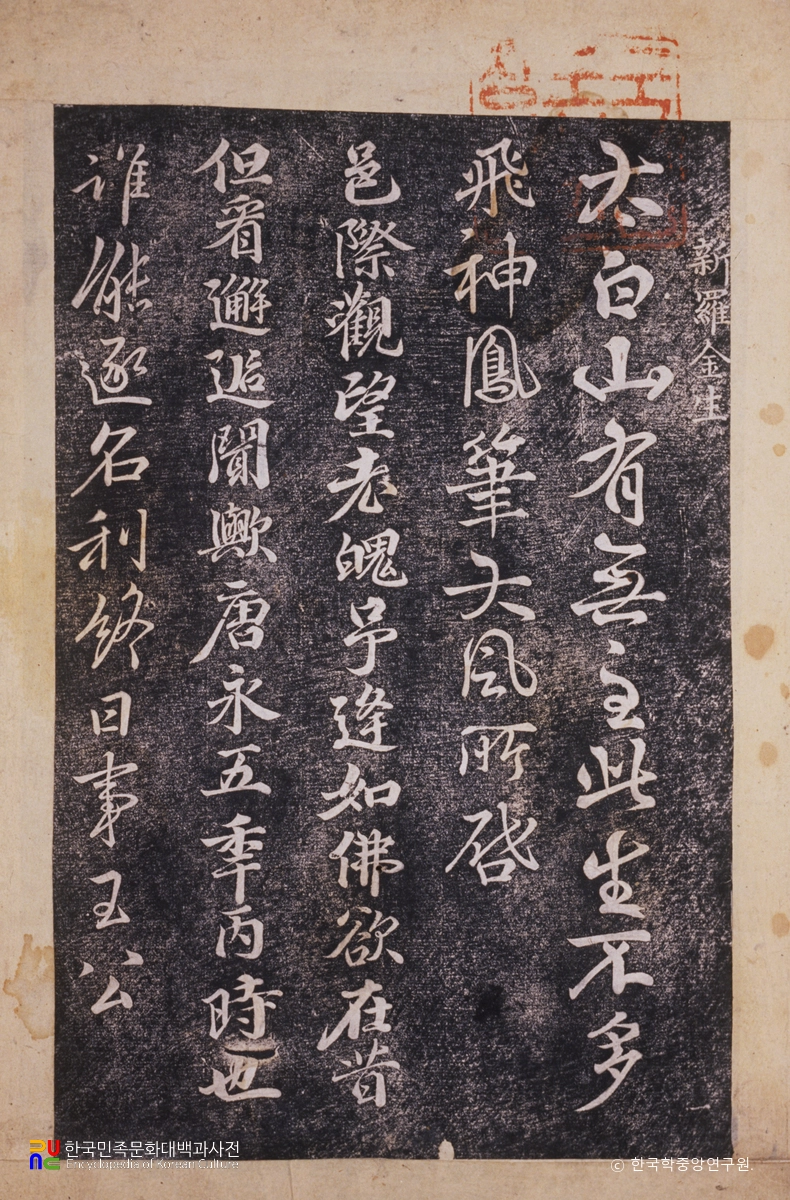 新羅金生
太白山有無主此生不多
飛神鳳筆大風所啓
邑際觀望老魄予逢如佛欲在昔
但看邂逅聞歟唐永五季丙時也
誰能逐名利終日事王公
한국민족문화대백과사전
Encyclopedia of Korean Culture
ⓒ 한국학중앙연구원.